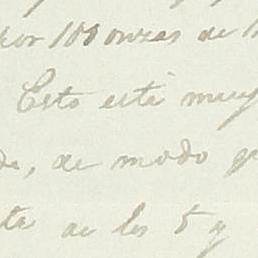 por 100 onzas de
Esto está muy
de, de modo q
ta de los 5 y